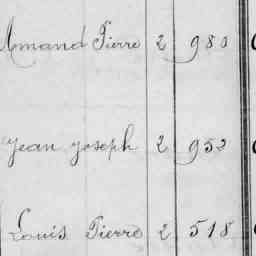 Amand Pierre 2 980
Jean Joseph 2 952
Louis Pierre 2 518